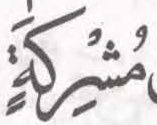 مُشْرِكَةٍ